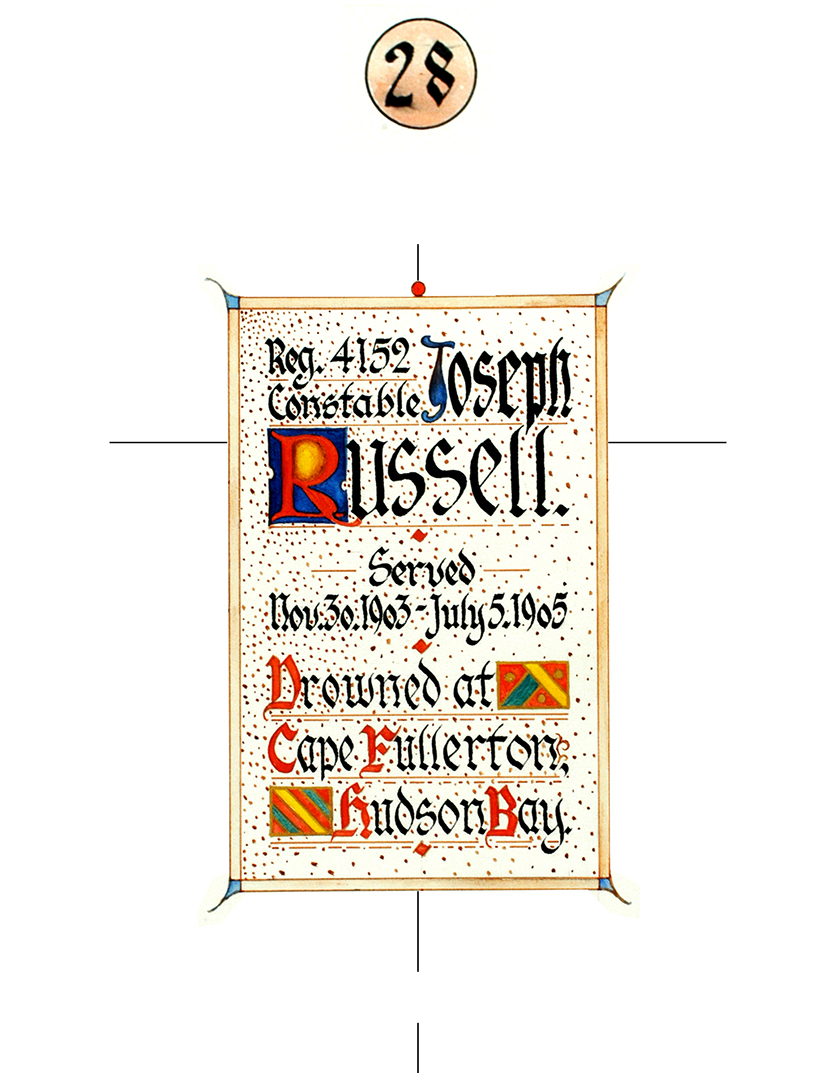 28
Reg. 4152
Constable Joseph
Russell.
Served
Nov. 30. 1903 - July 5. 1905
Drowned at
Cape Fullerton,
Hudson Bay.